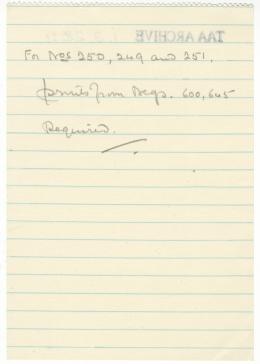 TAA ARCHIVE
For Nos 250, 249 and 251.
prints from Negs. 600,645
Required.